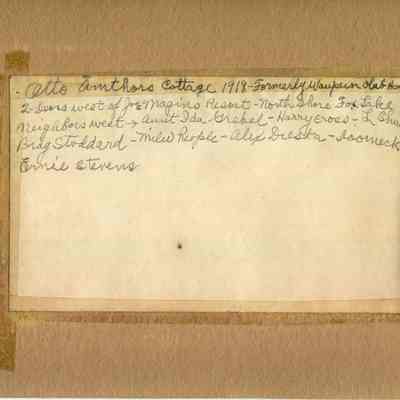 . Otto Amthors Cottage 1918 - Formerly Waupun Club Ho
2 Doors west of Joe Magins Resort - North Shore Fox Lake
Neighbors west → Aunt Ida - Grebel - Harry Cross - L Cha
Brdg Stoddard - Milw People - Alex Diesta -
Ernie Stevens